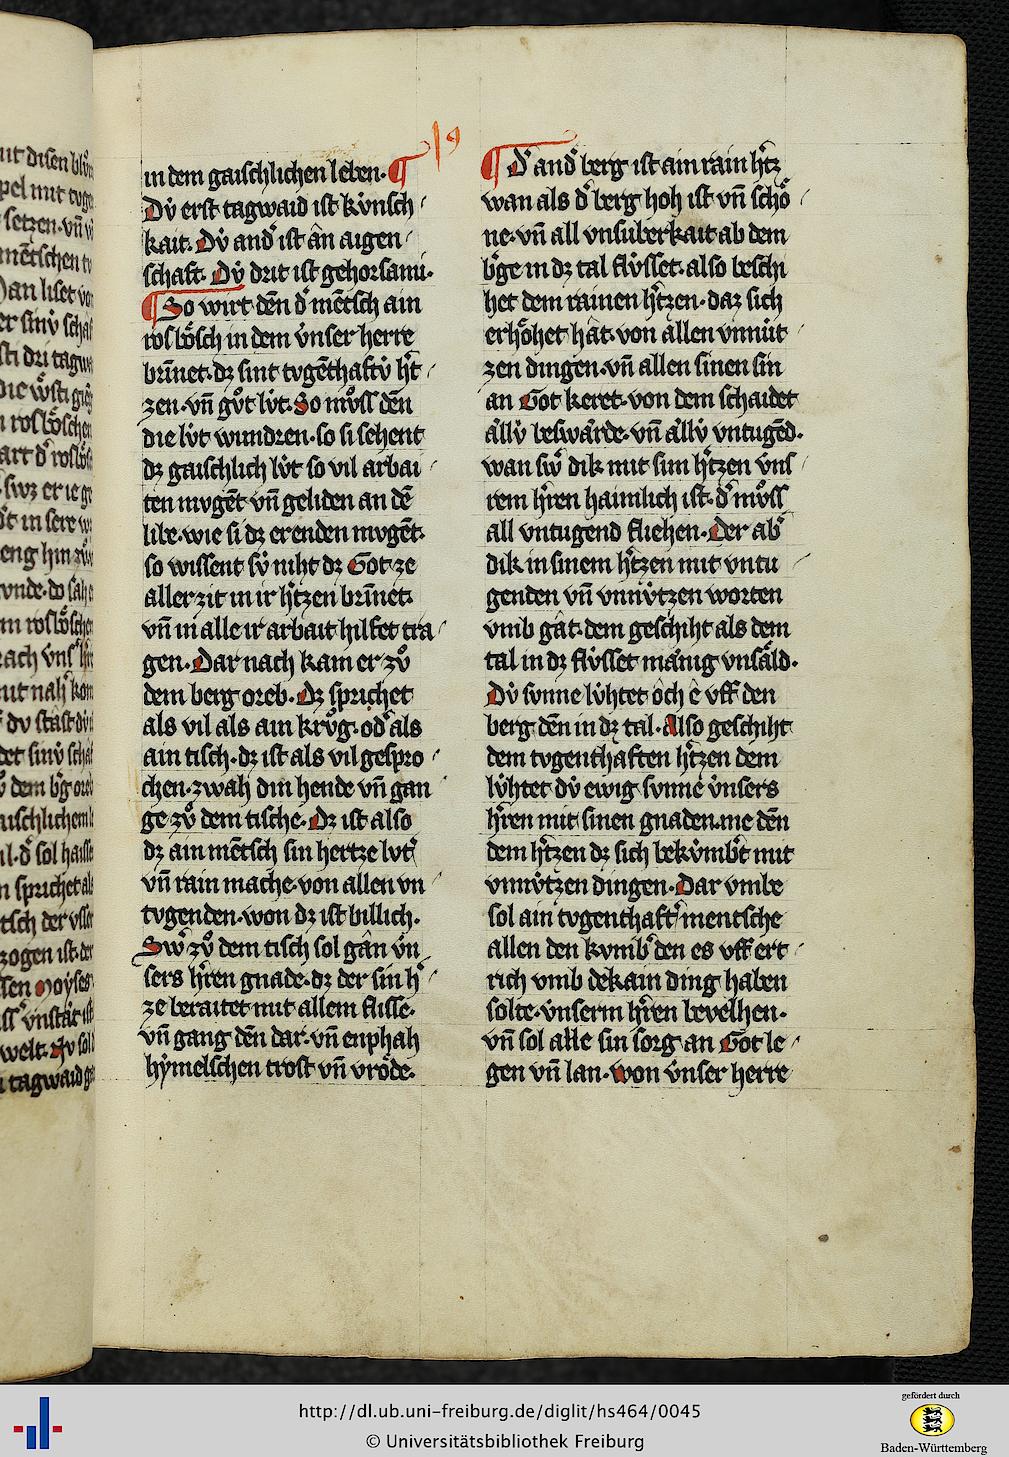 in dem gaischlichen leben· ¶
Dv̍ erst tagwaid ist kv̍nsch
kait. Dv̍ andˀ ist ân aigen
schaft. Dv̍ drit ist gehorsami·
¶ So wirt dēn dˀ mētsch ain
roslo̊sch in dem v̍nser herre
brīnet·dz sint tvgēthaftv̍ hˀt
zen·vn̄ gůt lv̍t·So mu̍ss dēn
die lv̍t wundren·so si sehent
dz gaischlich lv̍t so vil arbai
ten mvgēt vn̄ geliden an dē
libe·wie si dz erenden mvgēt·
so wissent sv̍ niht dz Got ze
aller zit in ir hˀtzen brīnet·
vn̄ in alle ir arbait hilfet tra
gen·Dar nach kam er zů
dem berg oreb·Dz sprichet
als vil als ain krůg·odˀ als
ain tisch·dz ist als vil gespro
chen·zwah din hende vn̄ gan
ge zů dem tische·Dz ist also
dz ain mētsch sin hertze lvtˀ
vn̄ rain mache·von allen vn
tvgenden·won dz ist billich·
Swˀ zů dem tisch sol gân v̍n
sers hˀren gnade·dz der sin hˀ
ze beraitet mit allem flisse·
vn̄ gang dēn dar·vn̄ enphah
hẏmelschen trost vn̄ vrȯde·
¶ Dˀ andˀ berg ist ain rain hˀtz
wan als dˀ berg hoh ist vn̄ scho̊
ne·vn̄ all vnsuberkait ab dem
bˀge in dz tal flv̍sset·also beschi
het dem rainen hˀtzen·daz sich
erho̊het hât·von allen vnnu̍t
zen dingen·vn̄ allen sinen sin
an Got keret·von dem schaidet
a̍llv̍ beswa̍rde·vn̄ a̍llv̍ vntugēd·
wan swˀ dik mit sim hˀtzen v̍ns
rem hˀren haimlich ist·dˀ mu̍ss
all vntugend fliehen·Der abˀ
dik in sinem hˀtzen mit vntu
genden vn̄ vnnv̍tzen worten
vmb gât·dem geschiht als dem
tal in dz flv̍sset ma̍nig vnsa̍ld·
Dv̍ svnne lv̍htet ȯch ê vff den
berg dēn in dz tal·Also geschiht
dem tvgenthaften hˀtzen dem
lv̍htet dv̍ ewig svnne v̍nsers
hˀren mit sinen gnaden·me dēn
dem hˀtzen dz sich bekv̍mbˀt mit
vnnv̍tzen dingen·Dar vmbe
sol ain tvgenthaftˀ mentsche
allen den kvmbˀ den es vff ert
rich vmb dekain ding haben
solte·v̍nserm hˀren bevelhen·
vn̄ sol alle sin sorg an Got le
gen vn̄ lan·won v̍nser herre
http://dl.ub.uni-freiburg.de/diglit/hs464/0045
© Universitätsbibliothek Freiburg
gefördert durch
Baden-Württemberg